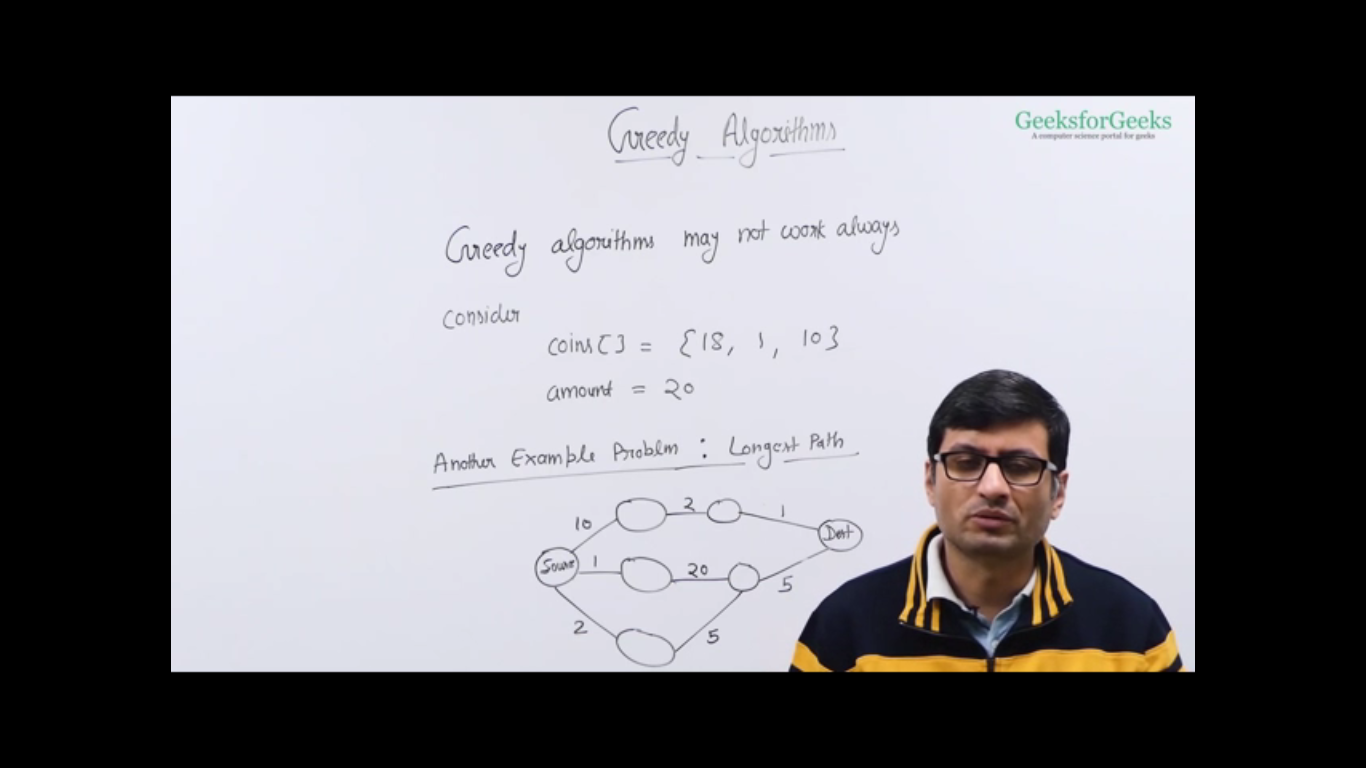 Greedy Algorithms
GeeksforGeeks
A computer science portal for geeks
Greedy algorithms may not work always
consider
coins[] = {18, 1, 10}
amount = 20
Another Example Problm : Longest Path
10 2 1
Dest
Sourc 1 20 5
2 5